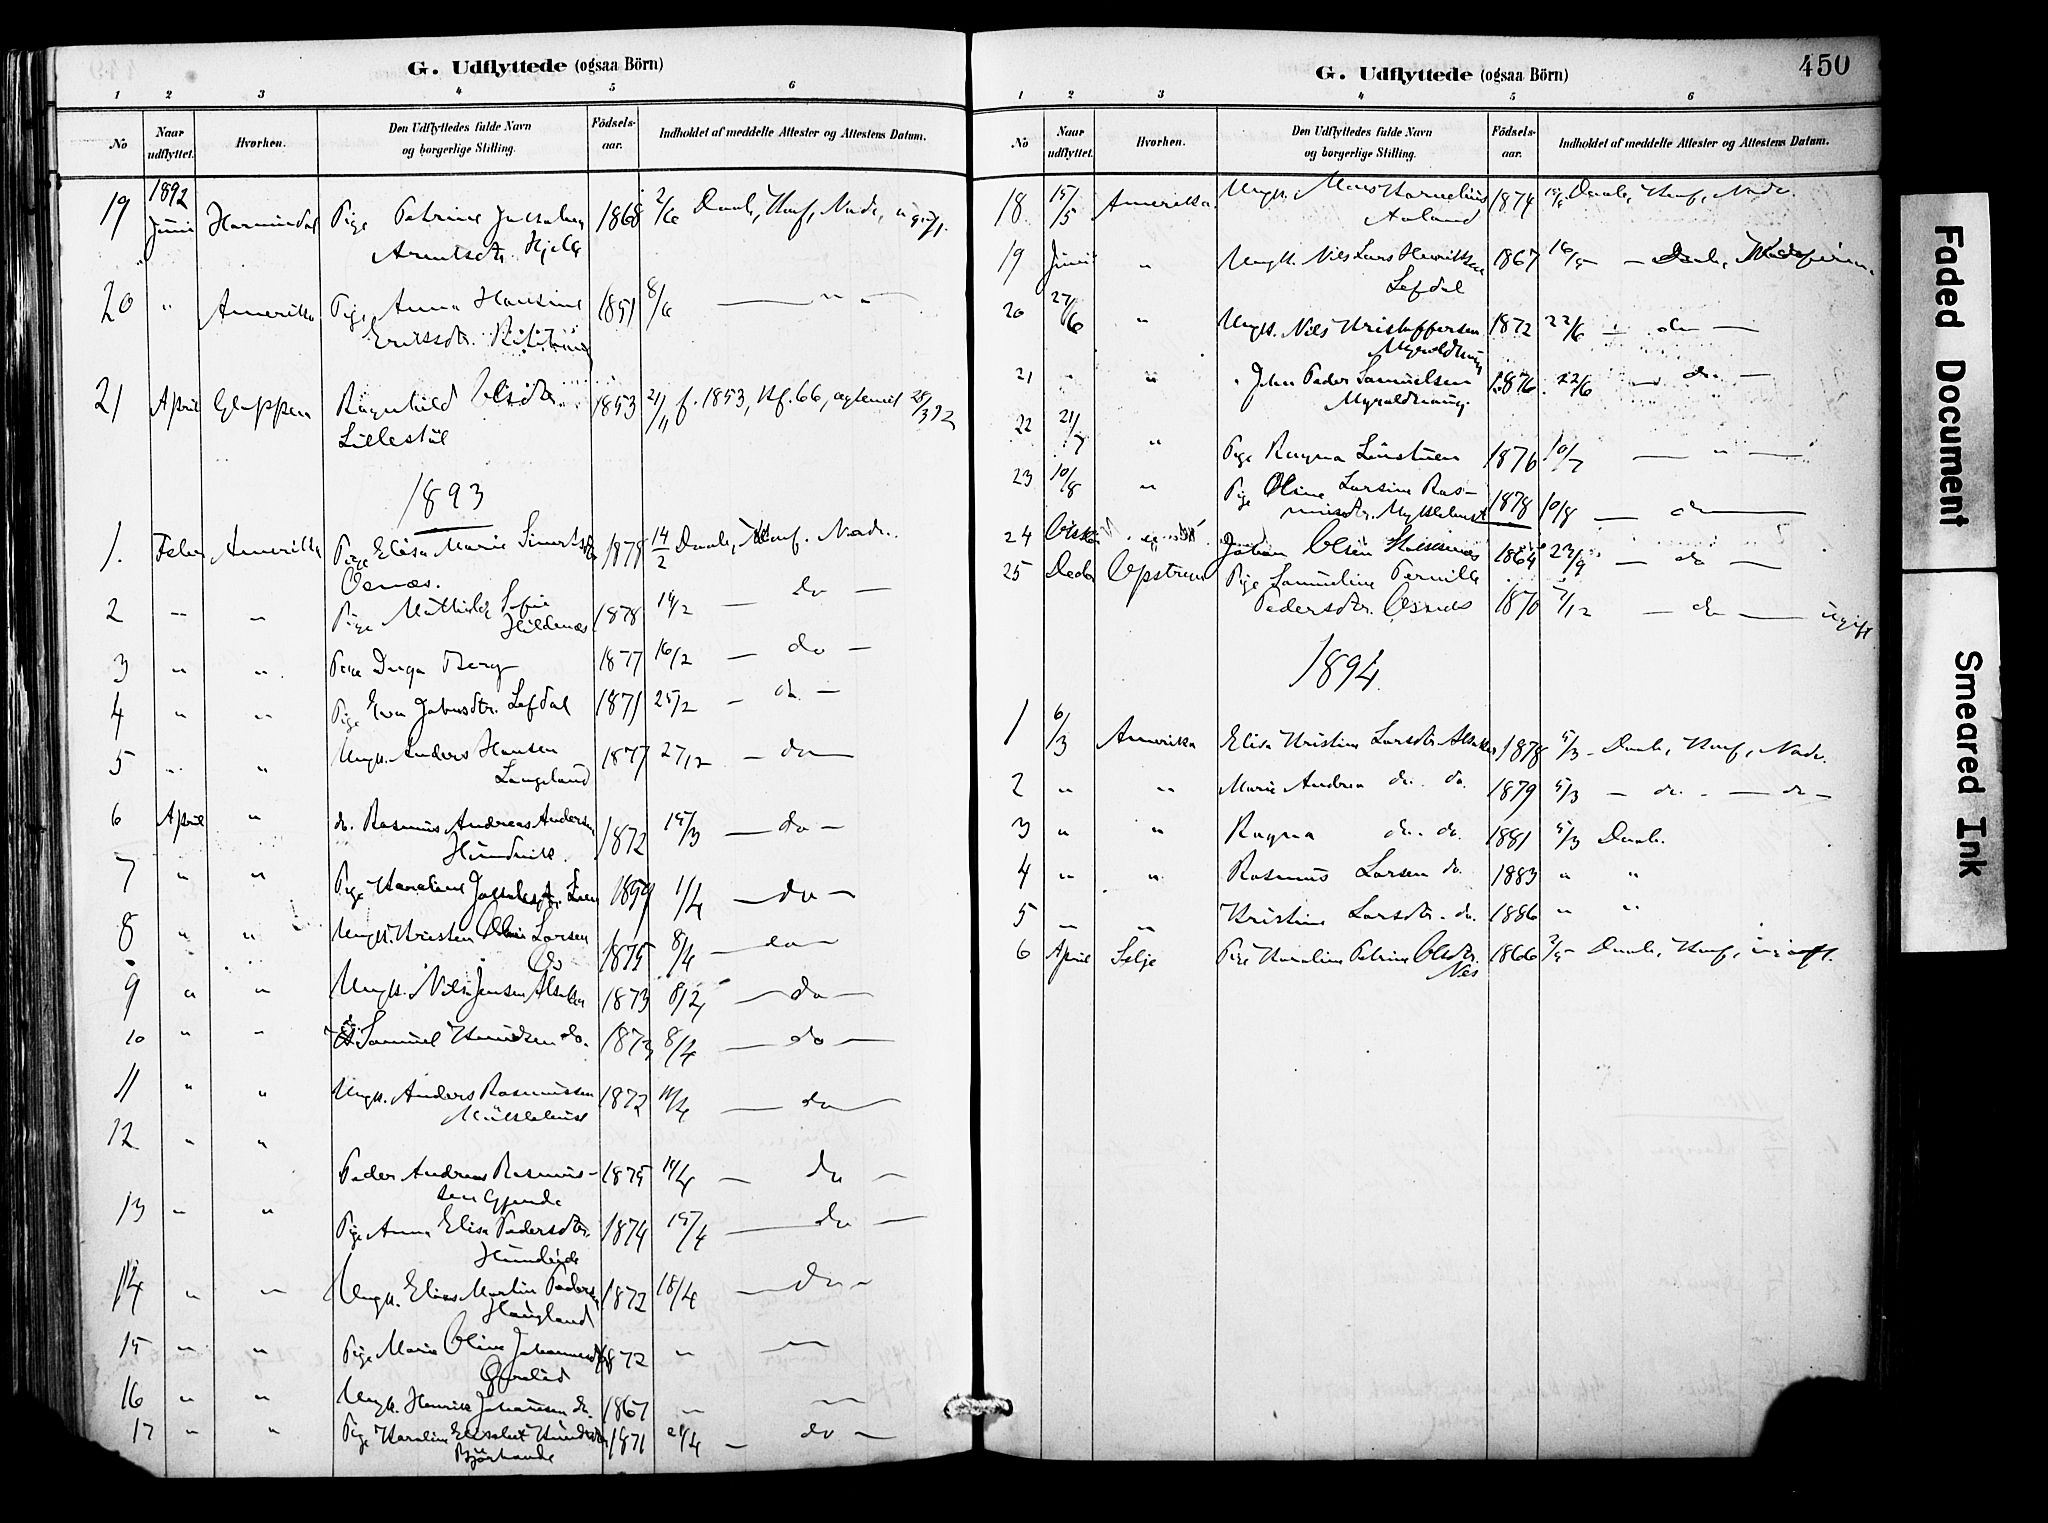 G. Udflyttede (ogsaa Börn)
1 2 3 4 5 6
No
Naar udflyttet.
Hvorhen.
Den Udflyttedes fulde Navn og borgerlige Stilling.
Födsels-aar.
Indholdet af meddelte Attester og Attestens Datum.
1892
19 Juni Pige Petrine 1868 2/6 Daab, Konf, Vadc, ugift.
Arentsdtr. Hjelle
20 " Amerika Pige Anna Hansine 1851 8/6 — " " —
Ericsdtr.
21 April Gloppen Ragnhild Olsdtr. 1853 21/11 f. 1853, Kf. 66,
Lillestöl
1893
1. Febr Amerika Pige Elisa Marie 1878 14/2 Daab, Konf. Vadc.
Osnæs.
2 — " Pige Mathilde Sofie 1878 14/2 — do —
Hildenæs
3 " " Pige Inga Berg 1877 16/2 — do —
4 " " Pige Lefdal 1871 25/2 — do —
5 " " Ungk. Anders Hansen 1877 27/12 — do —
Langeland
6 April " do. Rasmus Andreas Andersen 1872 15/3 — do —
Hundvik.
7 " " Pige Karoline 1/4 — do —
8 " " Ungk. Kristen Larsen 1875 8/4 — do —
Os
9 " " Ungk. Nils Jensen 1873 — do —
10 " " Samuel Knudsen do. 1873 8/4 — do —
11 " " Ungk. Anders Rasmussen 1872 14/4 — do
12 " "
Peder Andreas Rasmus- 1875 14/4 — do —
sen
13 " " Pige Anna Elisa Pedersdtr. 1874 15/4 — do —
Hundeide
14 " " Ungk. Elias Martin Pedersen 1872 18/4 — do —
Haugland
15 " " Pige Marie Oline 1872 " —
16 " " Ungk. Henrik Johannesen do. 1867 " —
17 " " Pige Karoline Elisabet 1871 21/4 — do —
Björhovde
G. Udflyttede (ogsaa Börn)
450
1 2 3 4 5 6
No
Naar udflyttet.
Hvorhen.
Den Udflyttedes fulde Navn og borgerlige Stilling.
Födsels-aar.
Indholdet af meddelte Attester og Attestens Datum.
18 15/5 Amerika Ungk. Kornelius 1874 Daab, Konf, Vadc.
Aaland
19 Juni " Ungk. Nils Lars Henriksen 1867 16/5 — Daab,
Lefdal
20 27/6 " Ungk. Nils Kristoffersen 1872 22/6 — do —
21 " " " John Peder Samuelsen 1876. 22/6 — do —
22 21/7 " Pige Ragna 1876 10/7 — " —
23 10/8 " Pige Oline Larsine Ras- 1878 10/8 — do —
musdtr. Myklebust
24 Johan Olsen 1864 22/9 — do —
25 Decbr Opstryn Pige Samueline Pernille
Pedersdtr. Osnæs 1870 7/12 — do — ugift
1894.
1 6/3 Amerika Elisa Kristine Larsdtr. 1878 5/3 - Daab, Konf, Vadc.
2 " " Marie Andrea do. do. 1879 5/3 — do. — do —
3 " " Ragna do. do. 1881 5/3 Daab.
4 " " Rasmus Larsen do. 1883 " "
5 " " Kristine Larsdtr. do. 1886 " "
6 April Selje Pige Karoline Petrine Olsdtr. 1866 2/5 Daab, Konf, ugift.
Nes
Faded Document
Smeared Ink